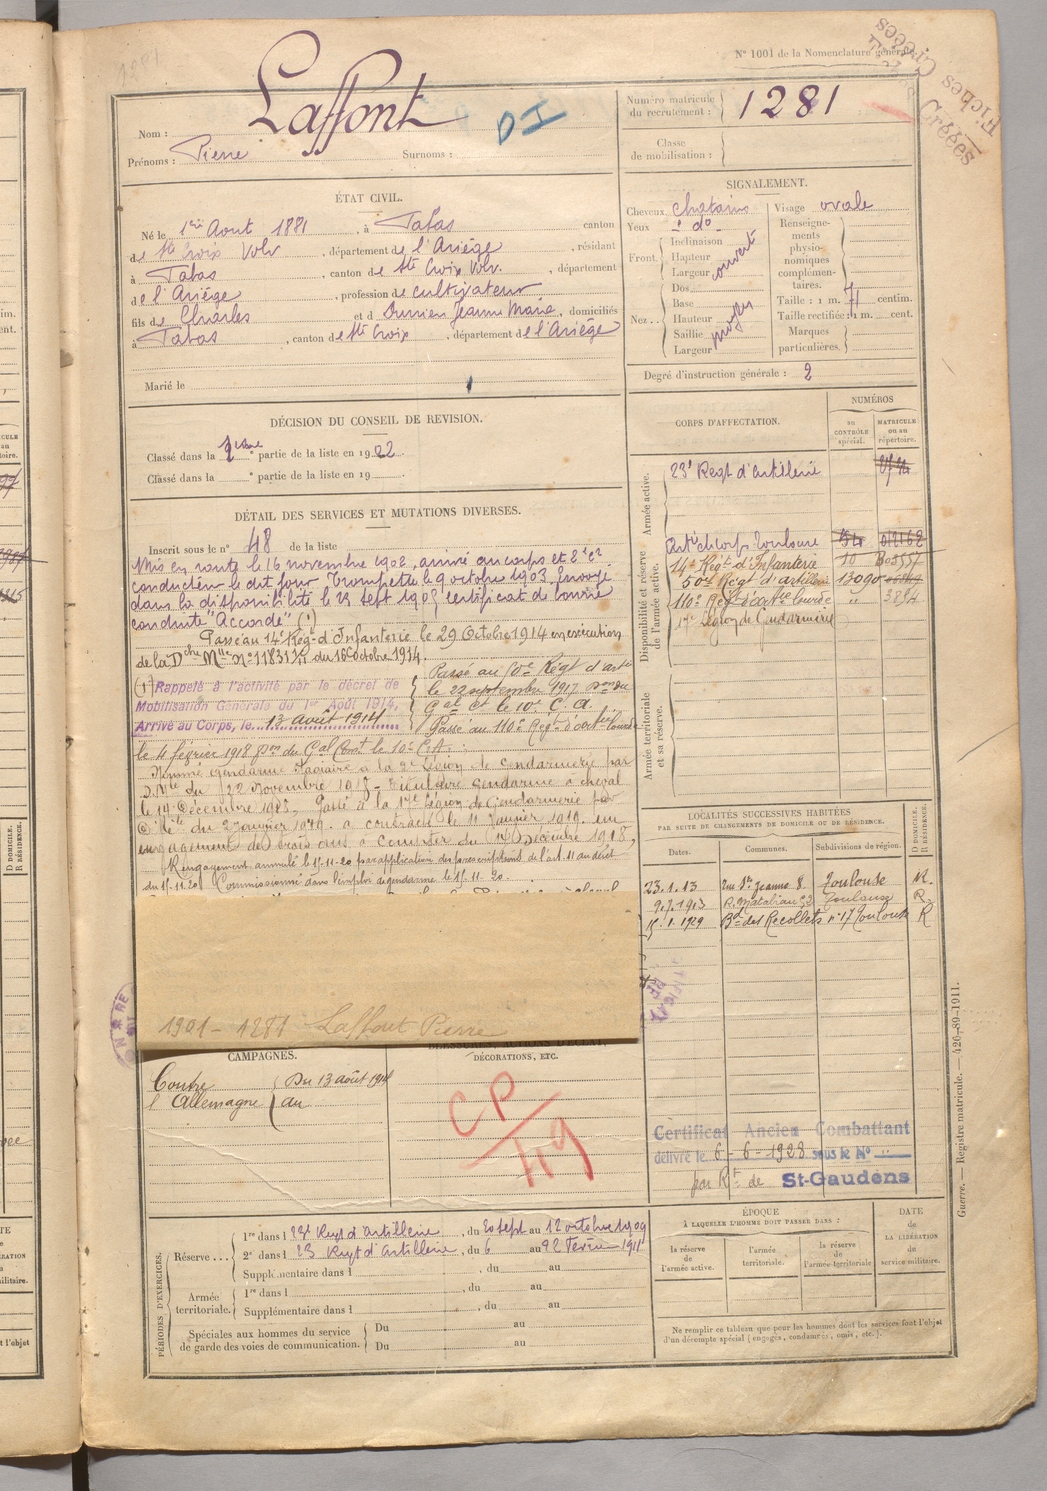 N° 1001 de la Nomenclature générale.
Fiches Créées
Nom : Laffont
DI
Prénoms : Pierre Surnoms :
Numéro matricule du recrutement : 1281
Classe de mobilisation :
ÉTAT CIVIL.
Né le 1er Aout 1881, à Tabas canton
de Ste Croix Volv, département de l'Ariège, résidant
à Tabas, canton de Ste Croix Volv., département
de l'Ariège, profession de cultivateur
fils de Charles et d Jeanne Marie, domiciliés
à Tabas, canton de Ste Croix, département de l'Ariège
Marié le
SIGNALEMENT.
Cheveux chatains
Yeux do
Front. Inclinaison
Hauteur
Largeur couvert
Nez Dos
Base
Hauteur moyen
Saillie
Largeur
Visage ovale
Renseignements physionomiques complémentaires.
Taille : 1 m. 71 centim.
Taille rectifiée : 1 m. cent.
Marques particulières.
Degré d'instruction générale : 2
DÉCISION DU CONSEIL DE REVISION.
Classé dans la 1ère partie de la liste en 1902
Classé dans la e partie de la liste en 19
CORPS D'AFFECTATION.
NUMÉROS
au CONTRÔLE spécial.
MATRICULE ou au répertoire.
Armée active.
23e Regt d'artillerie
Disponibilité et réserve de l'armée active.
Artie de corps Toulouse
14e Régt d'Infanterie 10
50e Régt d'artillerie 13090
110e Regt d'artie lourde " 3854
17e Légion de Gendarmerie
Armée territoriale et sa réserve.
DÉTAIL DES SERVICES ET MUTATIONS DIVERSES.
Inscrit sous le n° 48 de la liste
Mis en route le 16 novembre 1902, arrivé au corps et 2e cr
conducteur le dit jour. Trompette le 9 octobre 1903. Envoyé
dans la disponibilité le 23 sept 190 certificat de bonne
conduite "Accordé" (1)
Passé au 14e Régt d'Infanterie le 29 Octobre 1914 en exécution
de la Dche Mlle n° du 16 octobre 1914.
(1) Rappelé à l'activité par le décret de
Mobilisation Générale du 1er Août 1914,
Arrivé au Corps, le 13 Août 1914
Passé au 50e Régt d'artie
le 22 septembre 1917 Don du
Gal Ct le 10e C.A.
Passé au 110e Régt d'artie lourde
le 4 février 1918 Don du Gal Cmt le 10e C.A. :
Nommé Gendarme à la 9e Légion de Gendarmerie par
D. Mlle du 22 Novembre 1918 - Titulaire Gendarme à cheval
le 14 Décembre 1918. Passé à la 17e Légion de Gendarmerie par
Don Mlle du 2 Janvier 1919. a contracté le 11 Janvier 1919 un
engagement de trois ans à compter du Décembre 1918,
Rengagement annulé le 15.11.20 par application des prescriptions de l'art. 11 au décret
du 15.11.20 Commissionné dans l'emploi de gendarme le 15.11.20.
1901 - 1281 Laffont Pierre
LOCALITÉS SUCCESSIVES HABITÉES
PAR SUITE DE CHANGEMENTS DE DOMICILE OU DE RÉSIDENCE.
Dates. Communes. Subdivisions de région. D DOMICILE. R RÉSIDENCE.
23.1.13 Rue Ste Jeanne 8 Toulouse R.
9.7.1913 R. Matabiau 53 Toulouse R.
15.1.1929 Bd des Recollets n° 17 Toulouse R
CAMPAGNES.
Contre l'Allemagne Du 13 août 1914
au
BLESSURES, ACTIONS D'ÉCLAT,
DÉCORATIONS, ETC.
CP
49
Certificat Ancien Combattant
délivré le 6-6-1928 sous le N°
par Rt de St-Gaudens
PÉRIODES D'EXERCICES.
Réserve 1re dans l 23e Regt d'Artillerie, du 20 sept au 12 octobre 1909
2e dans l 23 Regt d'Artillerie, du 6 au 22 Février 1911
Supplémentaire dans l , du au
Armée territoriale. 1re dans l , du au
Supplémentaire dans l , du au
Spéciales aux hommes du service de garde des voies de communication. Du au
Du au
ÉPOQUE
À LAQUELLE L'HOMME DOIT PASSER DANS :
la réserve de l'armée active.
l'armée territoriale.
la réserve de l'armée territoriale
DATE de LA LIBÉRATION du service militaire.
Ne remplir ce tableau que pour les hommes dont les services font l'objet
d'un décompte spécial (engagés, condamnés, omis, etc.).
Guerre. — Registre matricule. — 426-89-1911.